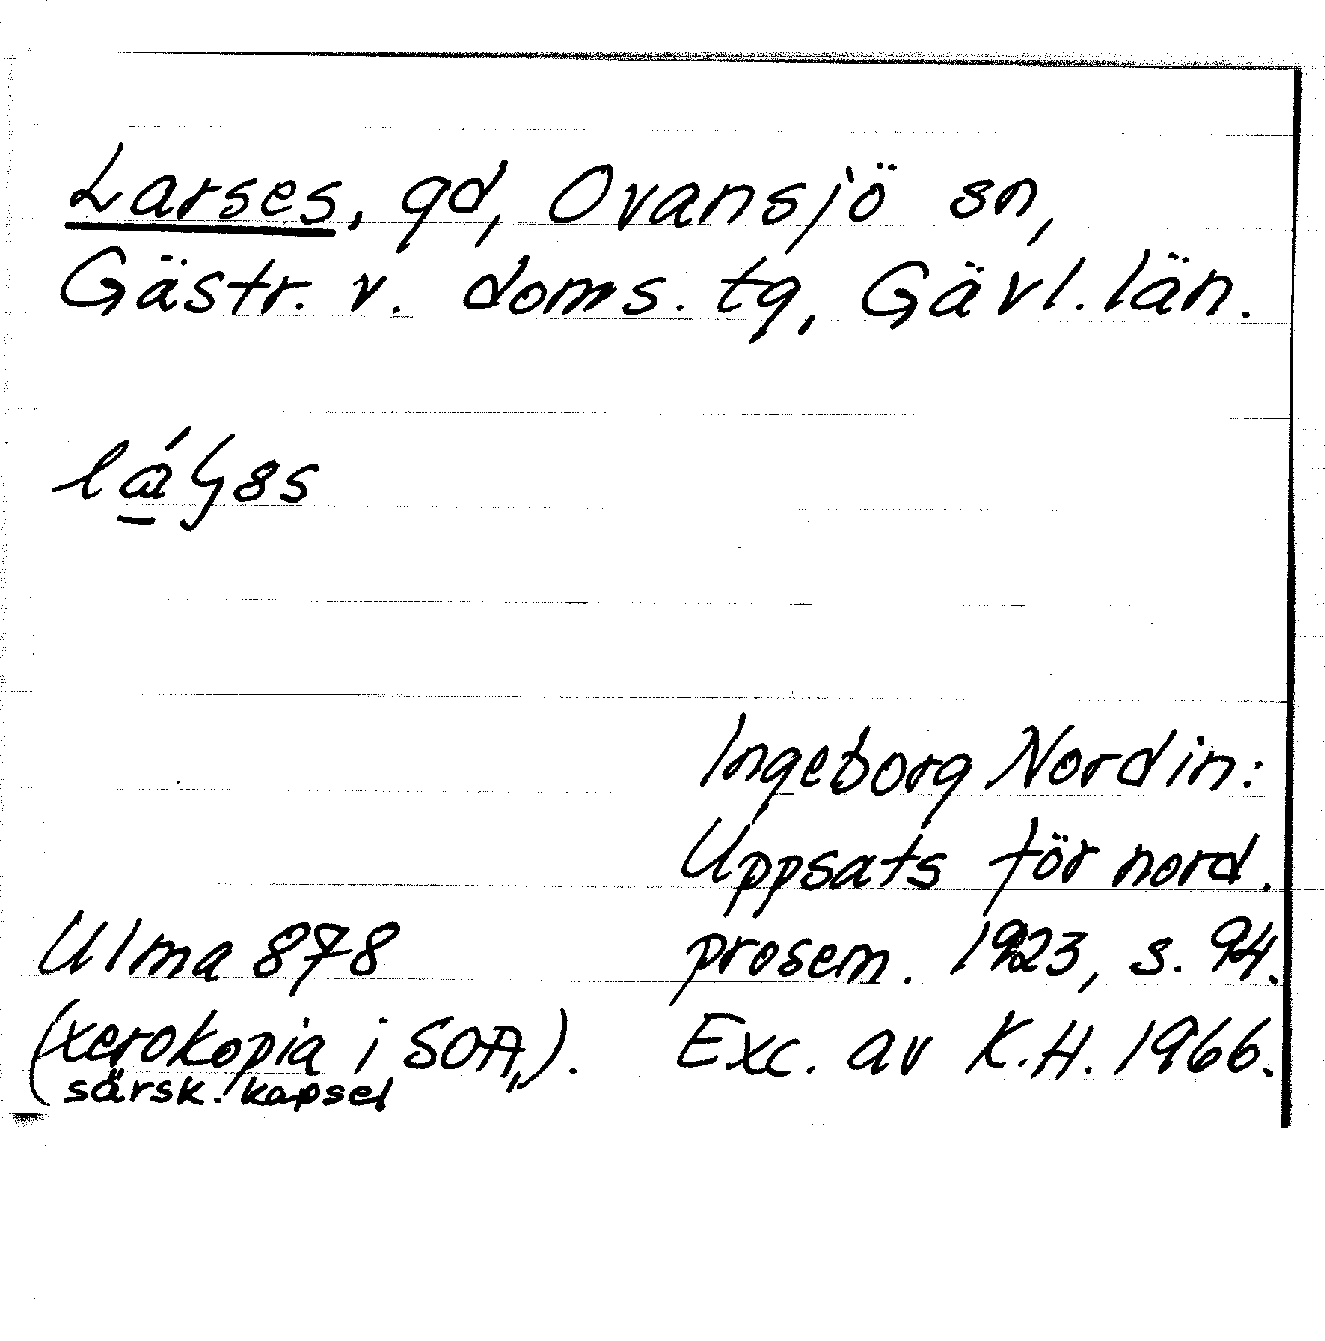 Larses, gd, Ovansjö sn,
Gästr. v. doms. tg, Gävl. län.
Ingeborg Nordin:
Uppsats för nord.
prosem. 1923, s. 94.
Exc. av K.H. 1966.
Ulma 878
(xerokopia i SOA,,).
särsk. kapsel